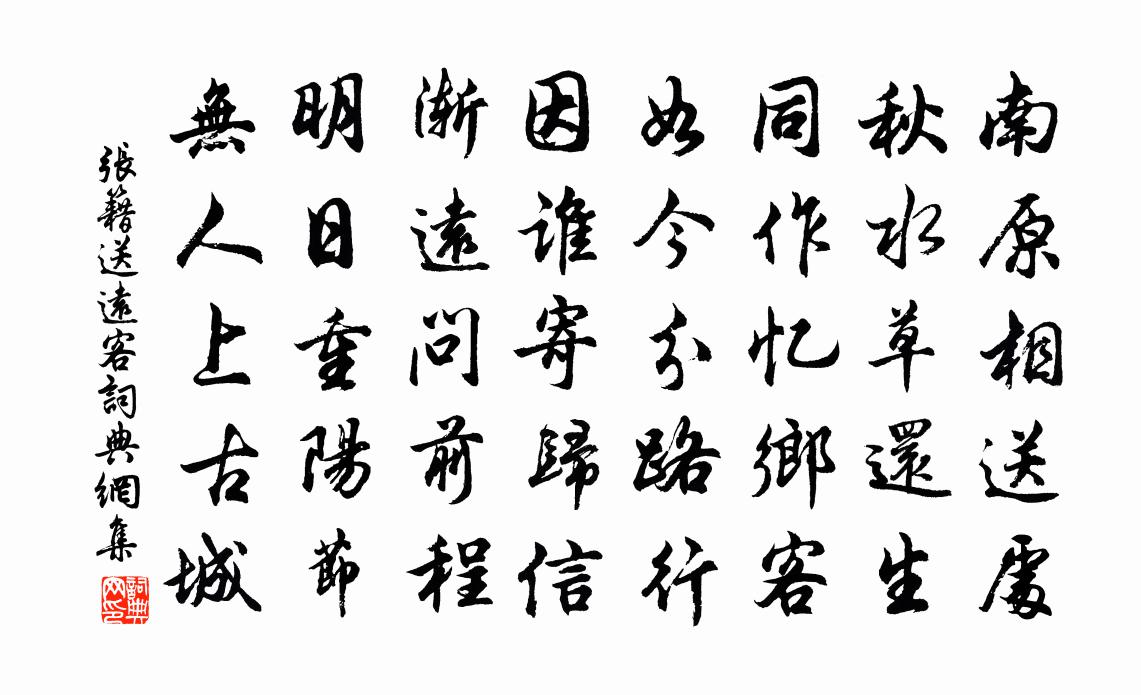 南原相送處
秋水草還生
同作忆鄉客
如今分路行
因誰寄歸信
漸遠問前程
明日重陽節
無人上古城
張籍送遠客詞典網集
詞典網印